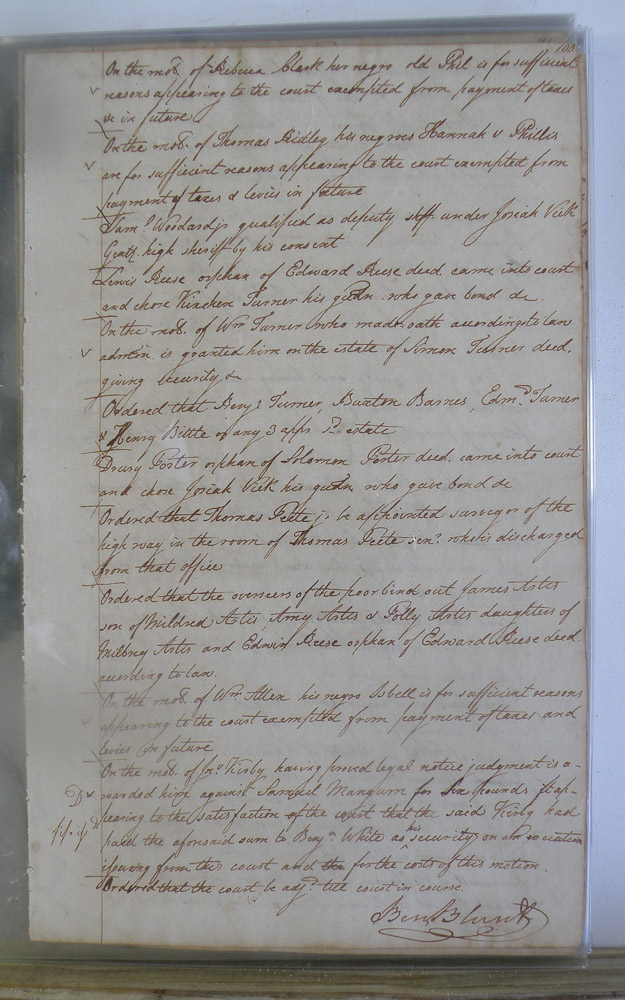 On the mo. of Rebecca Clark her negro old Phil is for sufficient
reasons appearing to the court exempted from payment of taxes
&c in future
On the mo. of Thomas Ridley his negroes Hannah & Phillis
are for sufficient reasons appearing to the court exempted from
payment of taxes & levies in future
Saml. Woodard jr qualified as deputy shff. under Josiah Vick
Gentl. high sheriff by his consent
Lewis Reese orphan of Edward Reese decd. came into court
and chose Kinchen Turner his gudn. who gave bond &c.
On the mo. of Wm Turner who made oath according to law
admon. is granted him on the estate of Simon Turner decd.
giving security &
Ordered that Benj. Turner, Buxton Barnes, Edmd. Turner
& Henry Bittle or any 3 appr. sd. estate
Drury Porter orphan of Solomon Porter decd. came into court
and chose Josiah Vick his gudn. who gave bond &c
Ordered that Thomas Peete jr. be appointed surveyor of the
high way in the room of Thomas Peete senr. who is discharged
from that office
Ordered that the overseers of the poor bind out James Artis
son of Mildred Artis, Amy Artis & Polly Artis daughters of
Milbrey Artis and Edwin Reese orphan of Edward Reese decd.
according to law.
On the mo. of Wm. Allen his negro Isbell is for sufficient reasons
appearing to the court exempted from payment of taxes and
levies in future
On the mo. of Jno. Kirby having proved legal notice judgment is a-
warded him against Samuel Mangum for six pounds it ap-
pearing to the satisfaction of the court that the said Kirby had
paid the aforesaid sum to Benj. White as his security on an execution
issuing from this court and the for the costs of this motion.
Ordered that the court be adjd. till court in course.
Ben Blunt